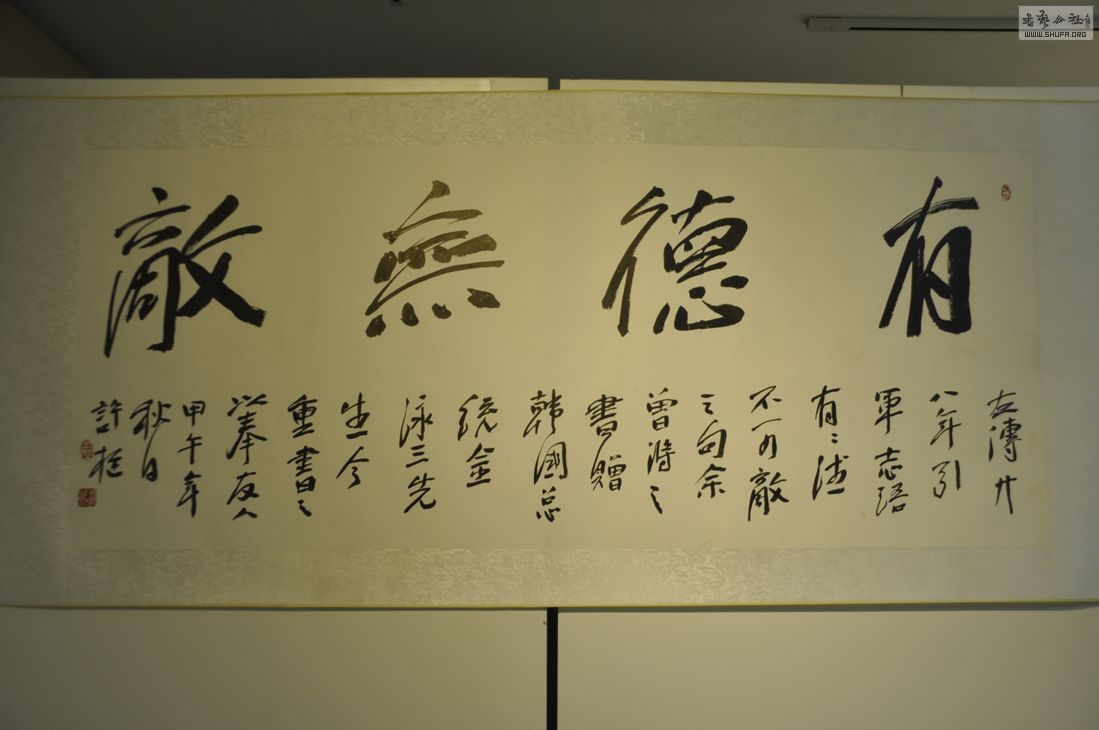 有德無敵
左傳廿
八年引
軍志語
有德
不可敵
之句余
曾將之
書贈
韓國总
統金
泳三先
生今
重書之
以奉友人
甲午年
秋日
許
書藝公社
WWW.SHUFA.ORG